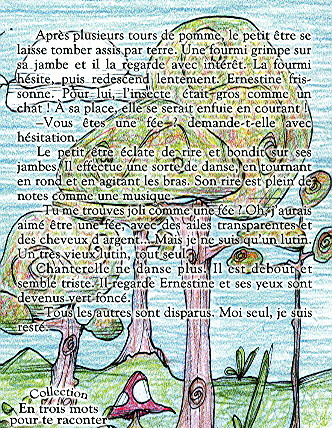 Après plusieurs tours de pomme, le petit être se
laisse tomber assis par terre. Une fourmi grimpe sur
sa jambe et il la regarde avec intérêt. La fourmi
hésite, puis redescend lentement. Ernestine fris-
sonne. Pour lui, l'insecte était gros comme un
chat ! À sa place, elle se serait enfuie en courant !
–Vous êtes une fée ? demande-t-elle avec
hésitation.
Le petit être éclate de rire et bondit sur ses
jambes. Il effectue une sorte de danse, en tournant
en rond et en agitant les bras. Son rire est plein de
notes comme une musique.
–Tu me trouves joli comme une fée ? Oh, j'aurais
aimé être une fée, avec des ailes transparentes et
des cheveux d'argent... Mais je ne suis qu'un lutin.
Un très vieux lutin, tout seul.
Chanterelle ne danse plus. Il est debout et
semble triste. Il regarde Ernestine et ses yeux sont
devenus vert foncé.
–Tous les autres sont disparus. Moi seul, je suis
resté.
Collection
En trois mots
pour te raconter